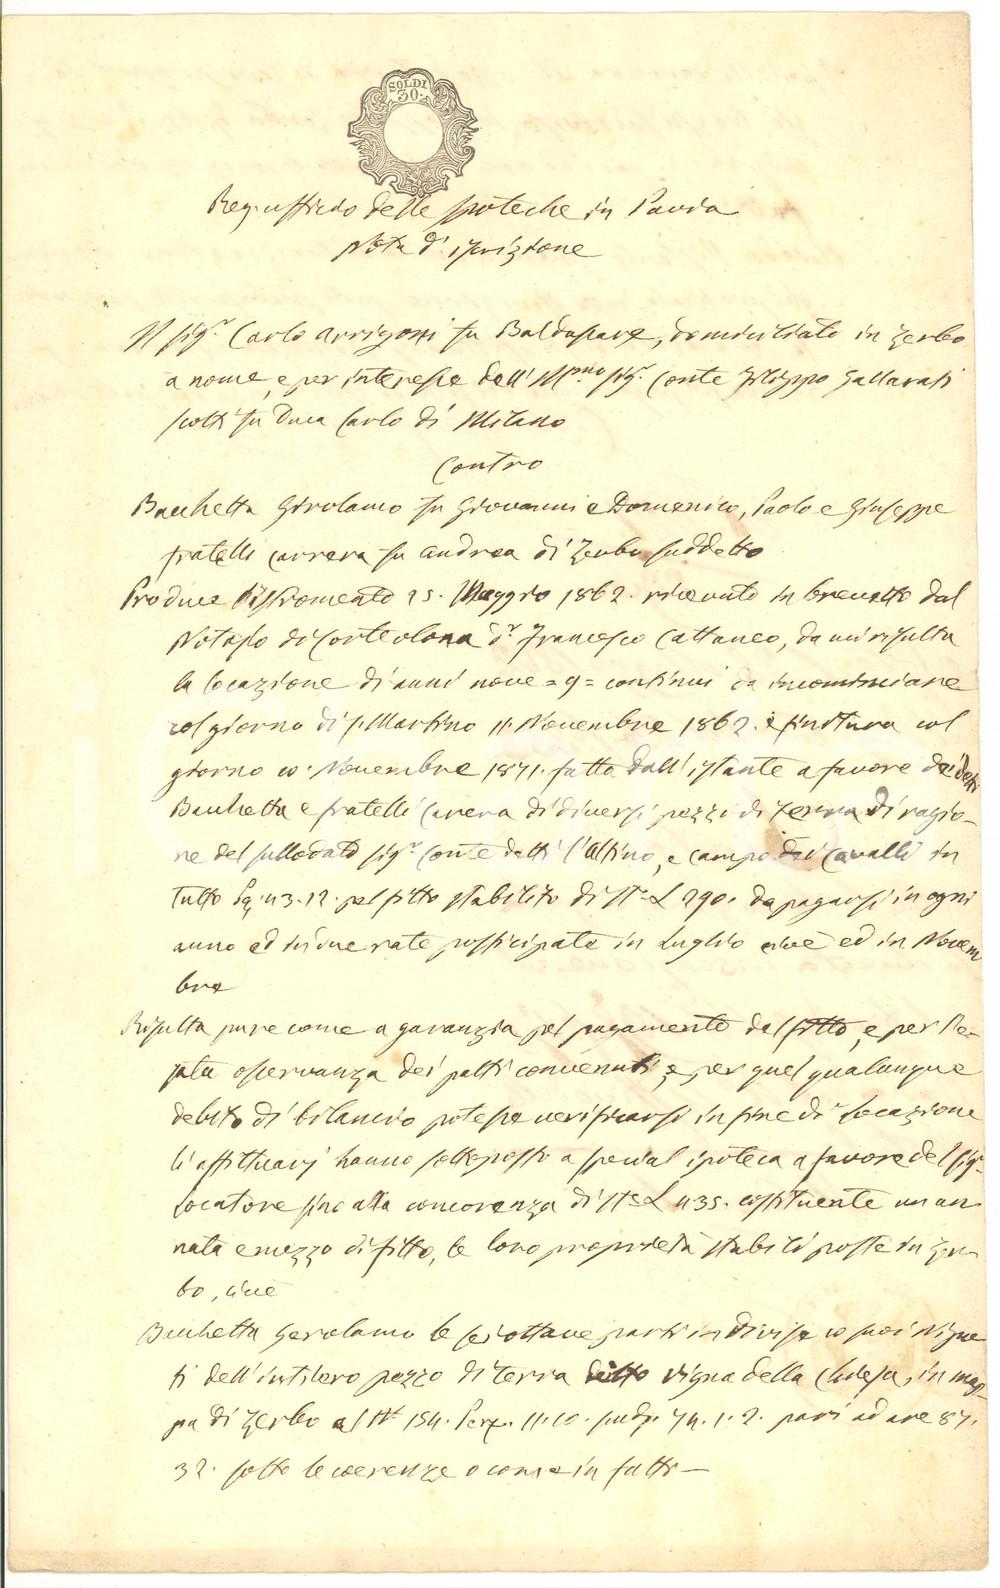 SOLDI
30
Reg. ufficio delle Ipoteche in Pavia
Nota d'iscrizione
Il sigr. Carlo Arrigoni fu Baldassare, domiciliato in Zerbo
a nome, e per interesse dell'Illmo sigr. Conte Filippo Gallarati
Scotti fu Duca Carlo di Milano
Contro
Bacchetta Girolamo fu Giovanni e Domenico, Paolo e Giuseppe
fratelli Carrera fu Andrea di Zerbo suddetto
Produce Istromento 25. Maggio 1862. ricevuto in brevetto dal
Notajo di Corteolona Dr. Francesco Cattaneo, da cui risulta
la locazione di anni nove = 9 = continui da incominciare
col giorno di S. Martino 11 Novembre 1862. e finitura col
giorno 10. Novembre 1871. fatta dall'istante a favore dei detti
Bacchetta e fratelli Carrera di diversi pezzi di terra di ragio-
ne del sullodato sigr. Conte detti l'Altino, e campo dei Cavalli in
tutto 43. 12. pel fitto stabilito di L 290. da pagarsi in ogni
anno ed in due rate posticipate in Luglio cioè ed in Novem
bre
Risulta pure come a garanzia pel pagamento del fitto, e per l'e-
satta osservanza dei patti convenuti, e per quel qualunque
debito di bilancio potesse verificarsi in fine di Locazione
li affittuarj hanno sottoposto a special ipoteca a favore del sigr.
Locatore sino alla concorrenza di L 435. costituente un'an
nata e mezzo di fitto, le loro proprietà stabili poste in Zer-
bo, cioè
Bacchetta Gerolamo le sei ottave parti indivise co' suoi Nipo
ti dell'intiero pezzo di terra detto Vigna della Chiesa, in map-
pa di Zerbo al N. 154. Pert. 11. 10. scudi 74. 1. 2. pari ad are 87.
32. sotto le coerenze o come in fatti —